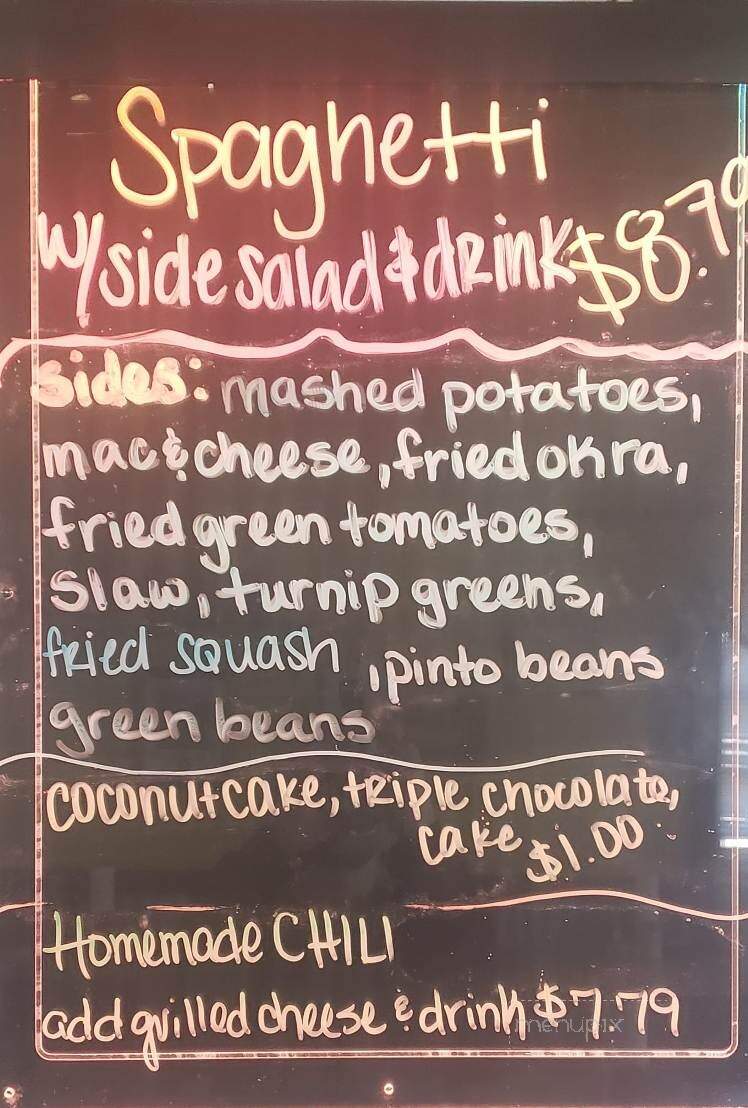 Spaghetti
w/side salad & drink $8.79
sides: mashed potatoes,
mac & cheese, fried okra,
fried green tomatoes,
slaw, turnip greens,
fried squash, pinto beans
green beans
coconut cake, triple chocolate,
cake $1.00
Homemade CHILI
add grilled cheese & drink $7.79
menupix